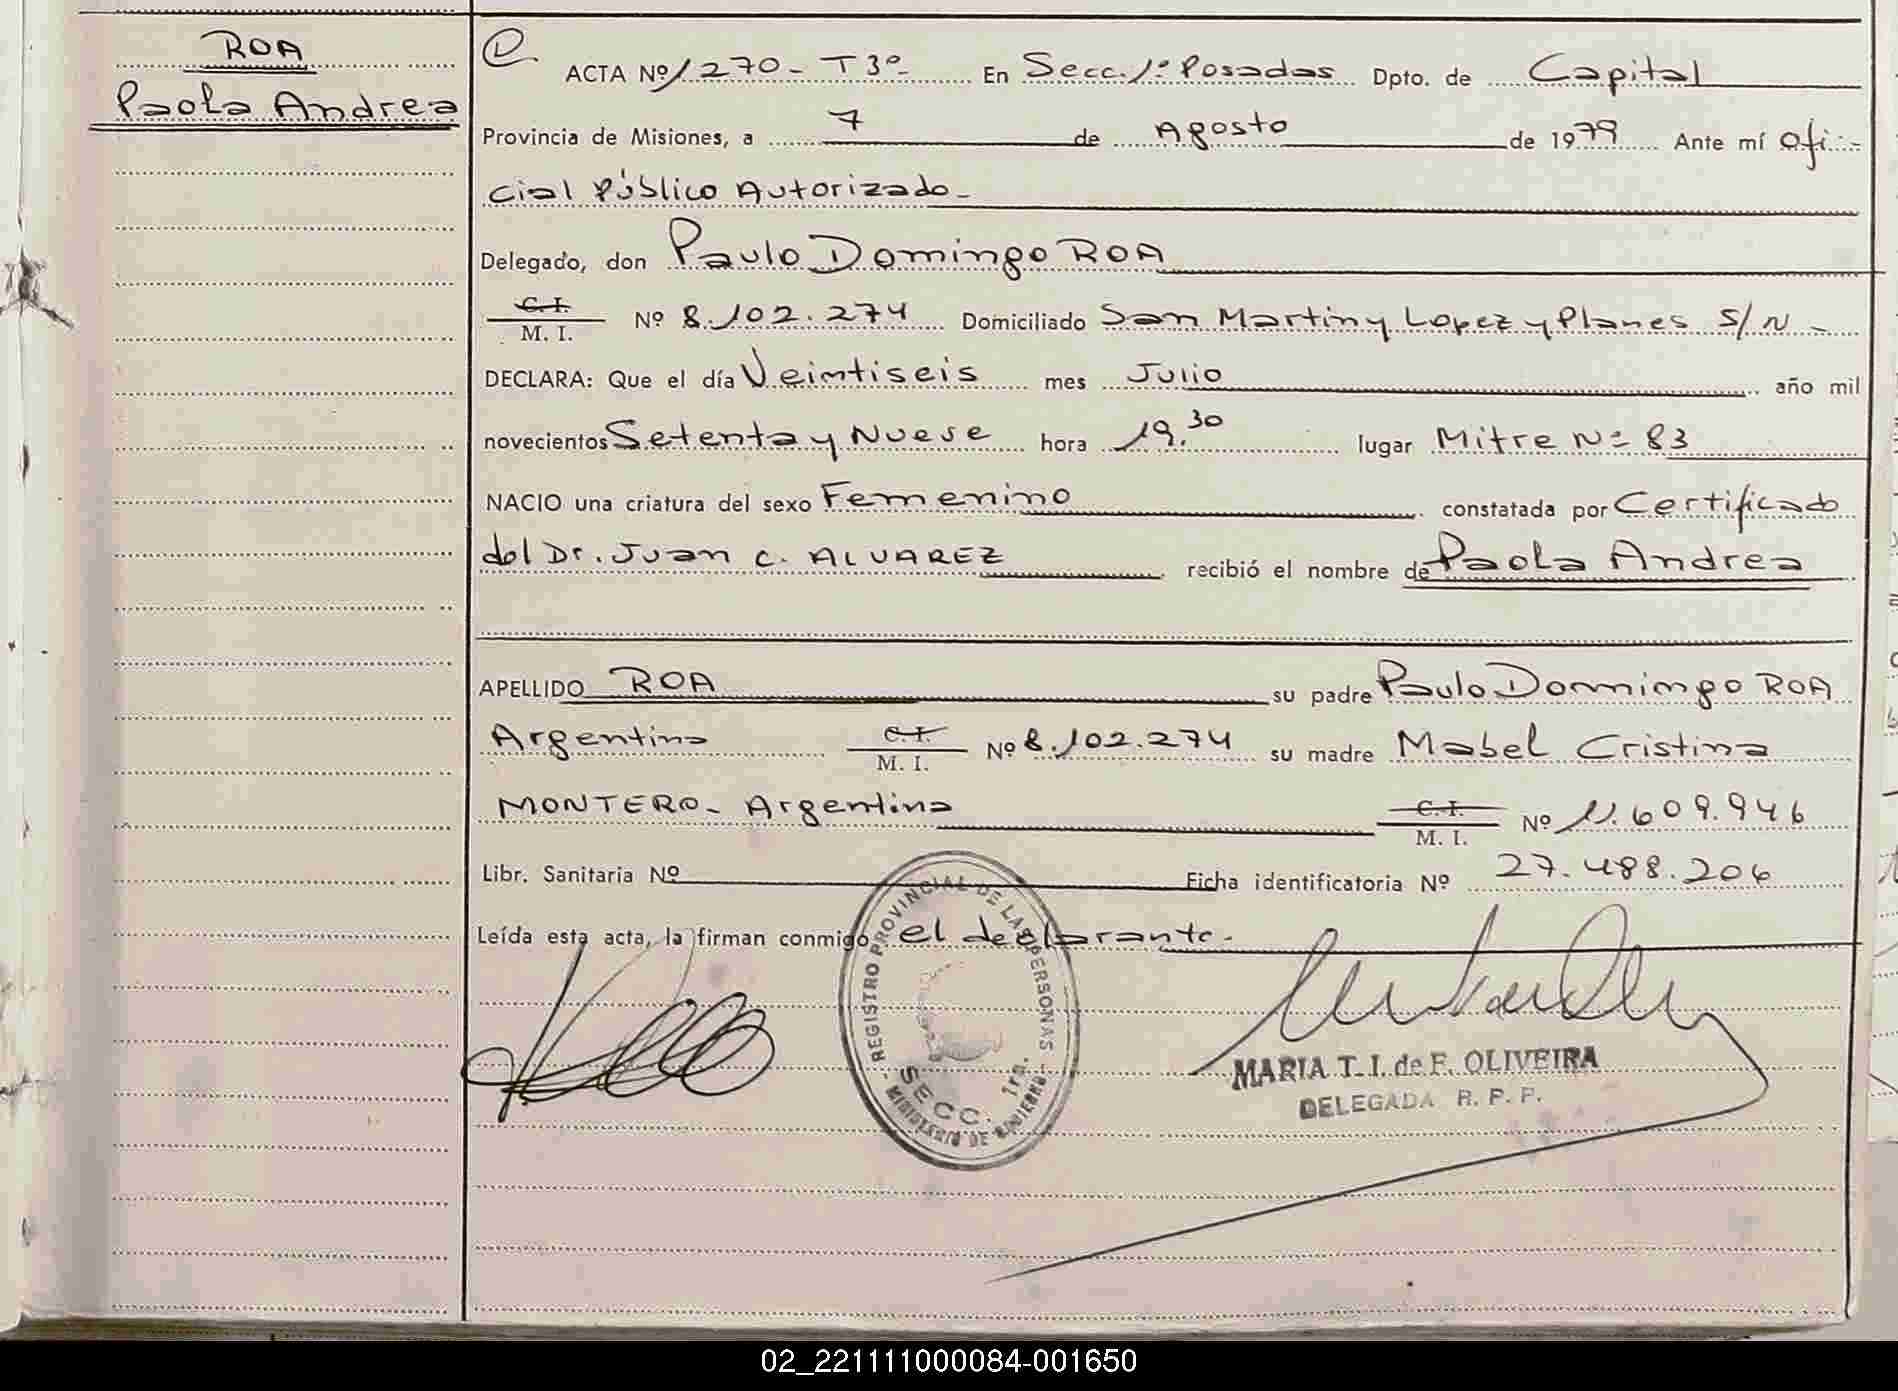 ROA
Paola Andrea
D.
ACTA Nº 1270 - T3º - En Secc. 1º Posadas Dpto. de Capital
Provincia de Misiones, a 7 de Agosto de 1979 Ante mí Ofi-
cial Público Autorizado -
Delegado, don Paulo Domingo ROA
C. I.
M. I. Nº 8.102.274 Domiciliado San Martin y Lopez y Planes S/N -
DECLARA: Que el día Veintiseis mes Julio año mil
novecientos Setenta y Nueve hora 19.30 lugar Mitre Nº 83
NACIO una criatura del sexo Femenino constatada por Certificado
del Dr. Juan C. ALVAREZ recibió el nombre de Paola Andrea
APELLIDO ROA su padre Paulo Domingo ROA
Argentino C. I.
M. I. Nº 8.102.274 su madre Mabel Cristina
MONTERO - Argentina C. I.
M. I. Nº 11.609.946
Libr. Sanitaria Nº Ficha identificatoria Nº 27.488.206
Leída esta acta, la firman conmigo el declarante -
REGISTRO PROVINCIAL DE LAS PERSONAS
SECC. 1ra.
MINISTERIO DE GOBIERNO
MARIA T. I. de F. OLIVEIRA
DELEGADA R. P. P.
02_221111000084-001650